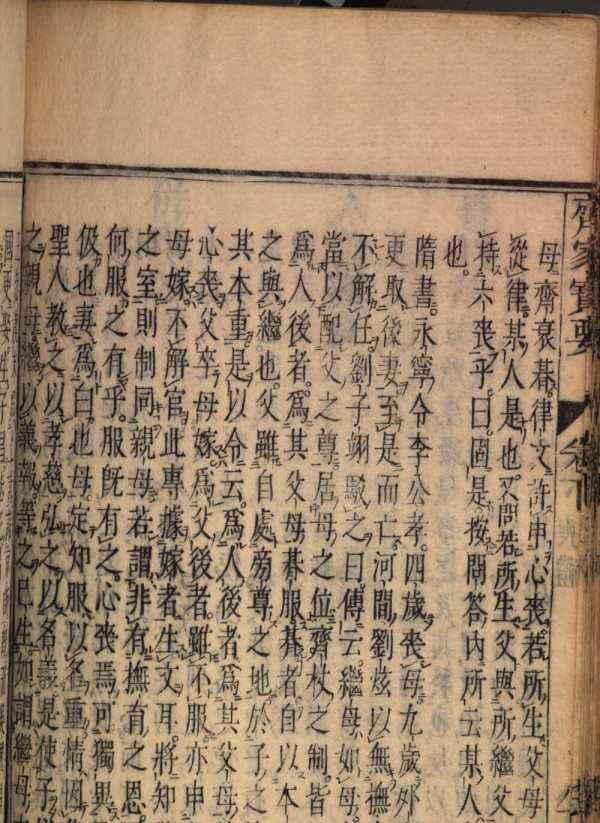 齊家寶要
母齊衰朞律文許申心喪若所生父母
從律某人是也又問若所生父與所繼父
持六喪乎曰固是按問答内所云某人
也
隋書永寧令李公孝四歲喪母九歲外
更取後妻至是而亡河間劉炫以無撫
不解任劉子翊駁之曰傳云繼母如母
當以配父之尊居母之位齊杖之制皆
爲人後者爲其父母朞服朞者自以本
之與繼也父雖自處旁尊之地於子之
其本重是以令云爲人後者爲其父母
心喪父卒母嫁爲父後者雖不服亦申
母嫁不解官此專據嫁者生文耳將知
之室則制同親母若謂非有撫育之恩
何服之有乎服既有之心喪焉可獨異
伋也妻爲白也母定知服以名重情因
聖人教之以孝慈弘之以名義是使子
之親母繼以義報等之己生如謂繼母